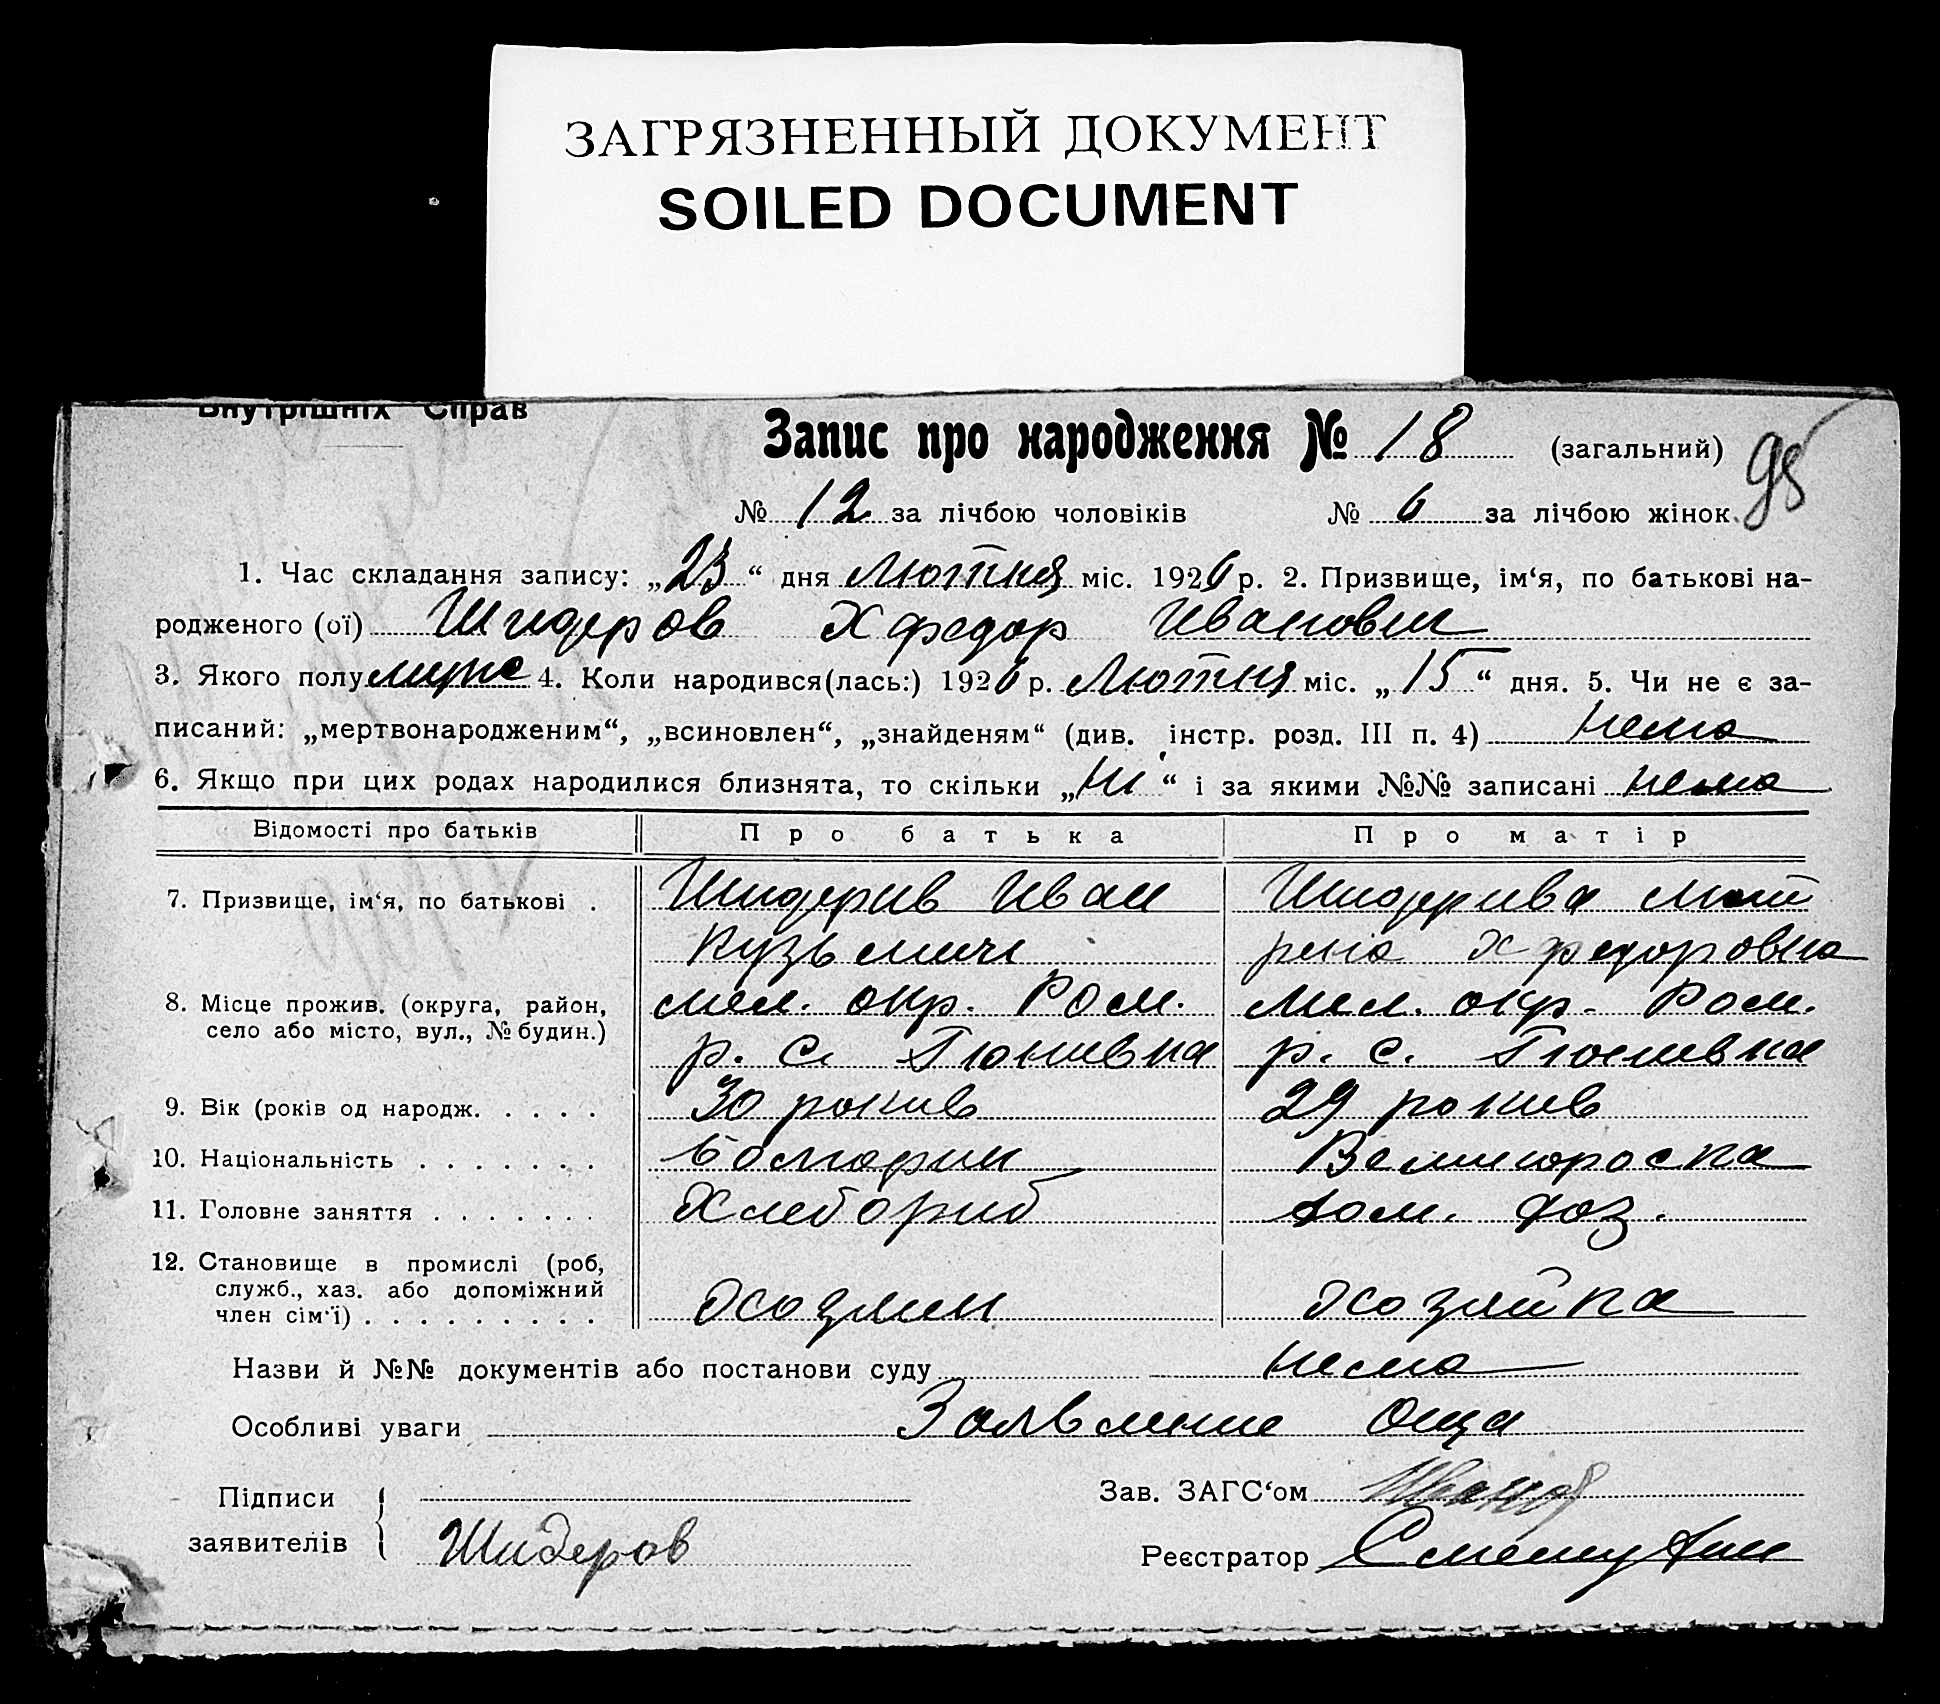 ЗАГРЯЗНЕННЫЙ ДОКУМЕНТ
SOILED DOCUMENT
Внутрішніх Справ
Запис про народження № 18 (загальний) 98
№ 12 за лічбою чоловіків № 6 за лічбою жінок.
1. Час складання запису: „23“ дня Лютня міс. 1926 р. 2. Призвище, ім‘я, по батькові на-
родженого (ої) Шидеров Хфедор Иванович
3. Якого полу муже 4. Коли народився(лась:) 1926 р. Лютня міс. „15“ дня. 5. Чи не є за-
писаний: „мертвонародженим“, „всиновлен“, „знайденям“ (див. інстр. розд. III п. 4) нема
6. Якщо при цих родах народилися близнята, то скільки „ни“ і за якими №№ записані нема
Відомості про батьків Про батька Про матір
7. Призвище, ім‘я, по батькові . Шидерив Иван Шидерива Мот
Кузьмич рена Хфедоровна
8. Місце прожив. (округа, район, мел. окр. Ром. Мел. окр. Ром.
село або місто, вул., № будин.) р. с. Гюнивка р. с. Гюнивка
9. Вік (років од народж. . . . . 30 рокив 29 рокив
10. Національність . . . . . . . болгарин Великороска
11. Головне заняття . . . . . . . Хлебориб дом. хоз.
12. Становище в промислі (роб,
служб., хаз. або допоміжний
член сім‘ї) . . . . . . . . . хозяин хозяйка
Назви й №№ документів або постанови суду нема
Особливі уваги Заявление Отца
Підписи Зав. ЗАГС‘ом
заявителів Шидеров Реєстратор